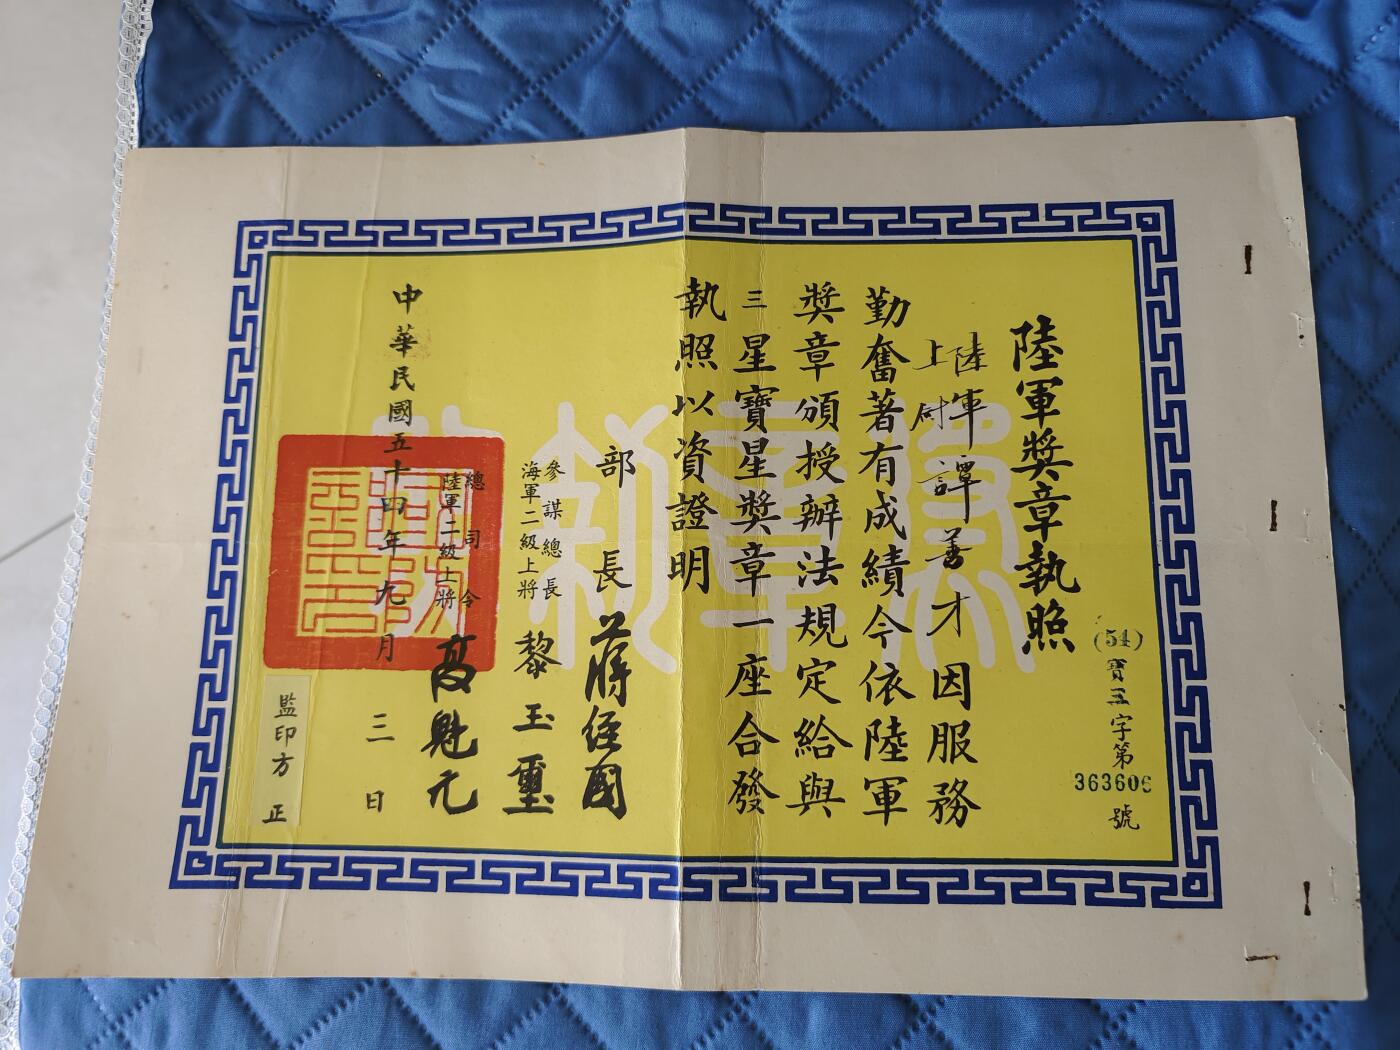 陸軍獎章執照
(54)寶三字第363606號
陸軍上尉譚善才因服務
勤奮著有成績今依陸軍
獎章頒授辦法規定給與
三星寶星獎章一座合發
執照以資證明
部長蔣經國
參謀總長
海軍二級上將黎玉璽
總司令
陸軍二級上將高魁元
中華民國五十四年九月三日
監印方正